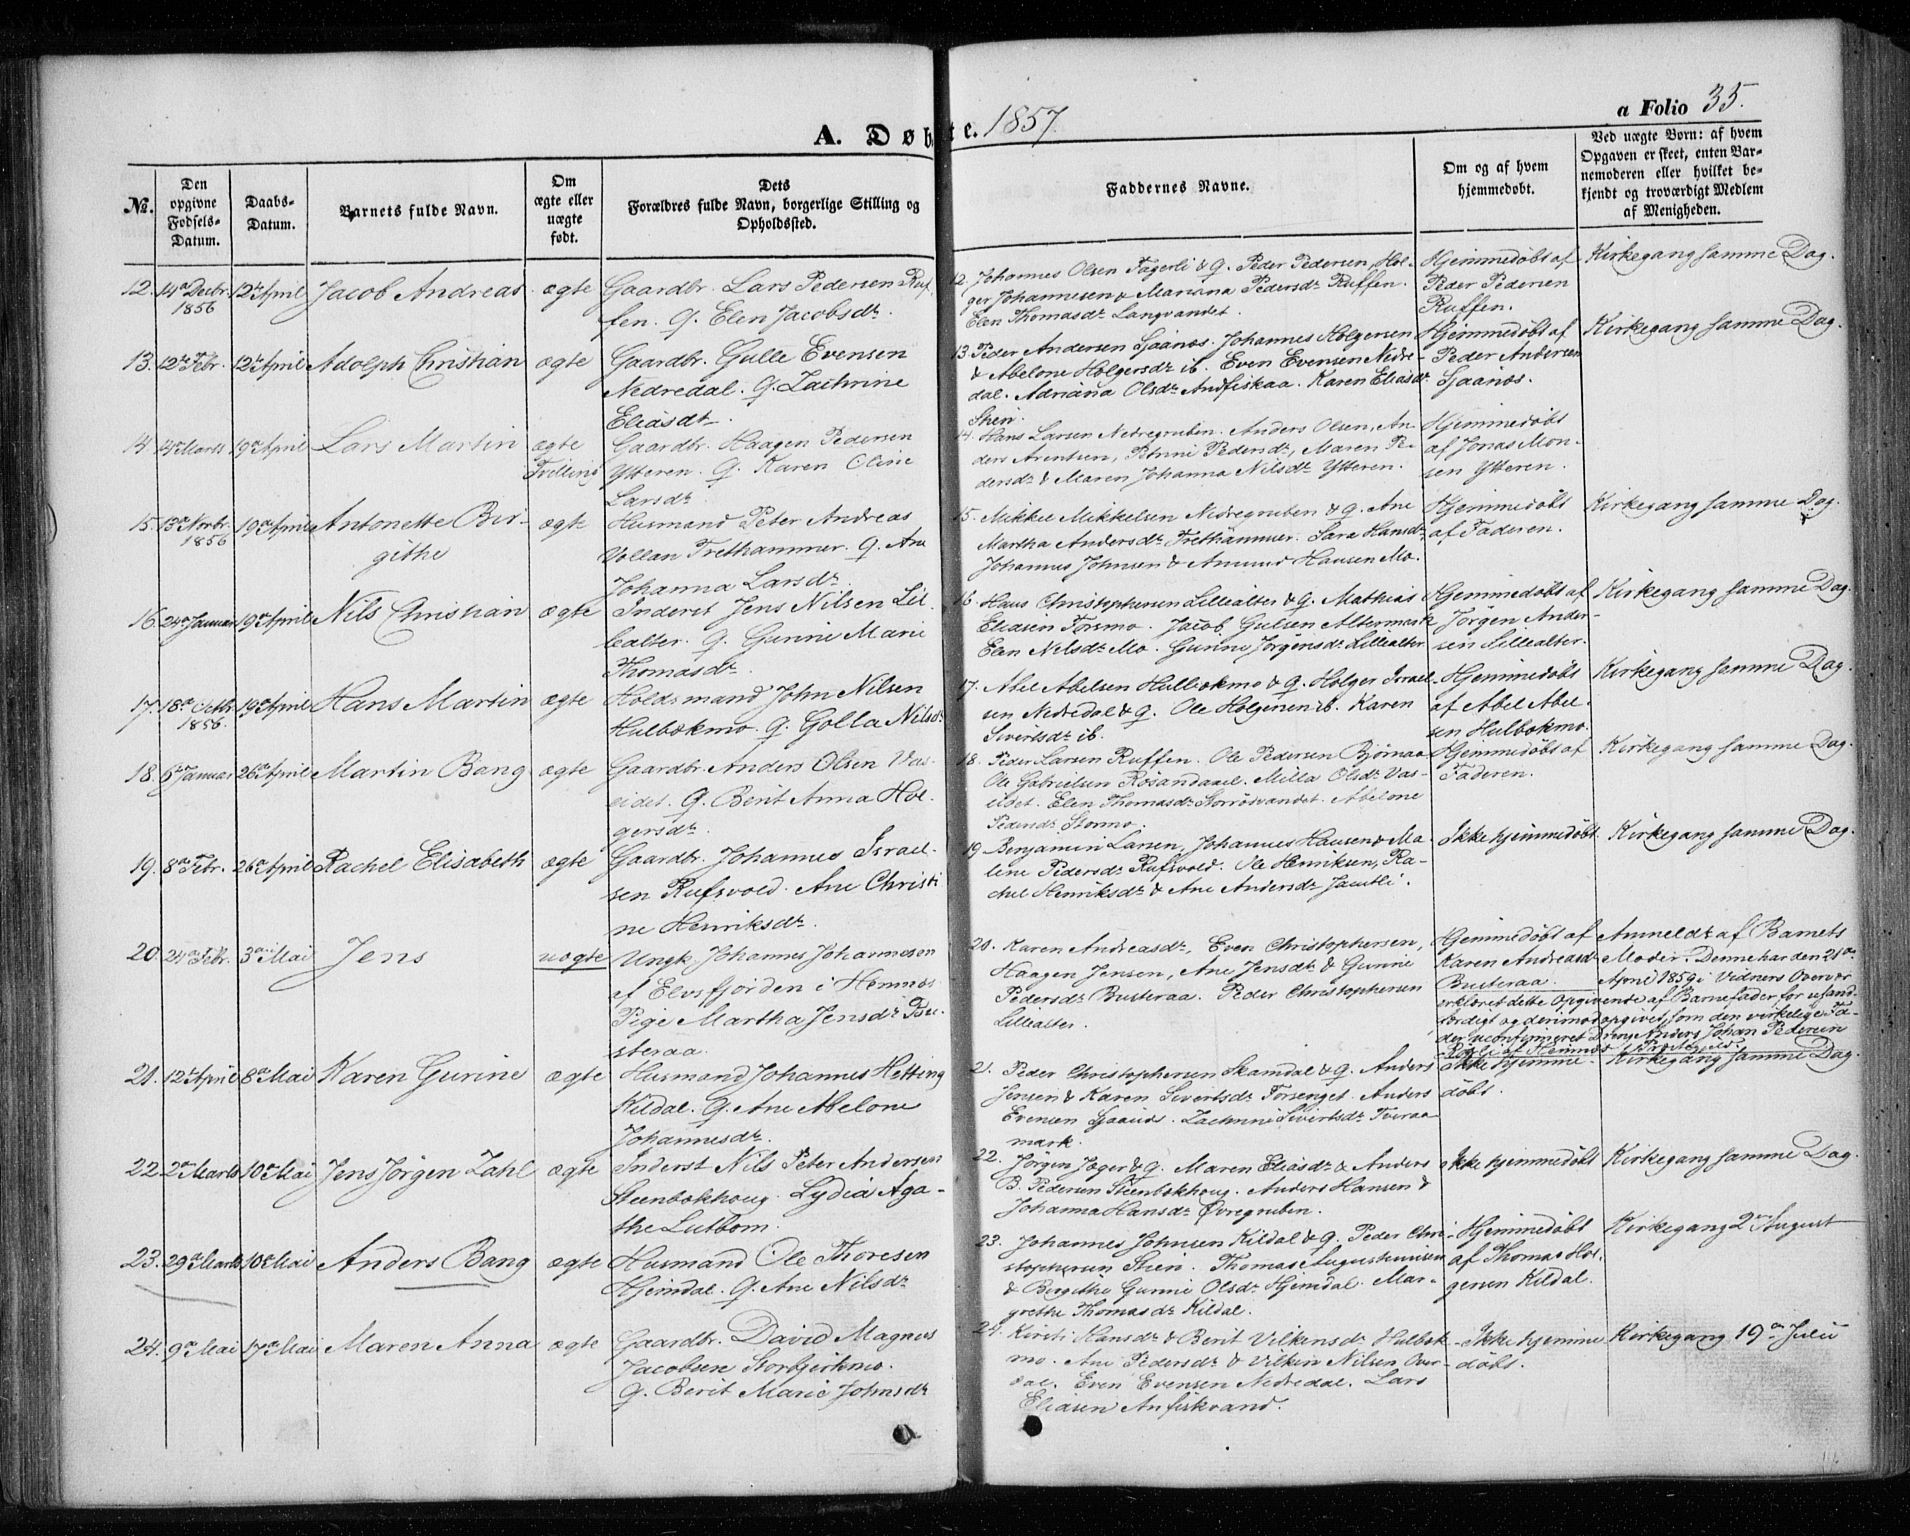 A. Døbte. 1857.
a Folio 35.
No.
Den opgivne Fødsels-Datum.
Daabs-Datum.
Barnets fulde Navn.
Om ægte eller uægte født.
Dets Forældres fulde Navn, borgerlige Stilling og Opholdssted.
Faddernes Navne.
Om og af hvem hjemmedøbt.
Ved uægte Børn: af hvem Opgaven er skeet, enten Barnemoderen eller hvilket bekjendt og troværdigt Medlem af Menigheden.
12. 14de Decbr. 1856 12te April Jacob Andreas. ægte
Gaardbr. Lars Pedersen Ruf-
fen. Q. Elen Jacobsdr.
12. Johannes Olsen Fagerli & Q. Peder Pedersen, Hol-
ger Johannesen & Mariana Pedersdr Ruffen.
Elen Thomasdr Langvandet.
Hjemmedöbt af
Peder Pedersen
Ruffen.
Kirkegang samme Dag.
13. 12te Febr. 12te April Adolph Christian ægte
Gaardbr. Gulle Evensen
Nedredal. Q. Zachrine
Eliasdt.
13. Peder Andersen Sjaanæs. Johannes Holgersen
& Abelone Holgersdr ib. Even Evensen Nedre-
dal. Adriana Olsdr Andfiskaa. Karen Eliasdr
Stien.
Hjemmedöbt af
Peder Andersen
Sjaanæs.
Kirkegang samme Dag.
14. 14de Marts 19de April Lars Martin ægte
Tvilling
Gaardbr. Haagen Pedersen
Ytteren. Q. Karen Oline
Larsdr.
14. Hans Larsen Nedregruben. Anders Olsen, An-
ders Arentsen, Pedersdr, Maren Pe-
dersdr & Maren Johanna Nilsdr Ytteren.
Hjemmedöbt
af Jonas Mon-
sen Ytteren.
15. 13de Novbr. 1856 19de April Antonette Bir-
githe
ægte
Husmand Peter Andreas
Vollan Trethammer. Q. Ane
Johanna Larsdr.
15. Mikkel Mikkelsen Nedregruben & Q. Ane
Martha Andersdr Trethammer. Sara Hansdr
Johannes Johnsen & Amund Hansen Mo.
Hjemmedöbt
af Faderen.
Kirkegang samme Dag.
16. 24de Januar 19de April Nils Christian ægte
Inderst Jens Nilsen Lil-
lealter. Q. Gurine Marie
Thomasdr.
16. Hans Christophersen Lillealter & Q. Mathias
Eliasen Forsmo. Jacob Gulsen Altermark
Elen Nilsdr Mo. Gunni Jörgensdr Lillealter
Hjemmedöbt af
Jörgen Ander-
sen Lillealter.
Kirkegang samme Dag.
17. 18de Octbr. 1856. 19de April Hans Martin ægte
Holdsmand John Nilsen
Hulbækmo. Q. Golla Nilsdr
17. Abel Abelsen Hulbækmo & Q. Holger Israel-
sen Nedredal & Q. Ole Holgersen ib. Karen
Sivertsdr ib.
Hjemmedöbt
af Abel Abel-
sen Hulbækmo.
Kirkegang samme Dag.
18. 6te Januar 26de April Martin Bang ægte
Gaardbr. Anders Olsen Vas-
eidet. Q. Berit Anna Hol-
gersdr.
18. Peder Larsen Ruffen. Ole Pedersen Bjørnaa
Ole Gabrielsen Røsandaael. Milla Olsdr Vas-
eidet. Elen Thomasdr Storrösvandet. Abelone
Pedersdr Stormo.
Hjemmedöbt af
Faderen.
Kirkegang samme Dag.
19. 8de Febr. 26de April Rachel Elisabeth ægte
Gaardbr. Johannes Israel-
sen Rufsvold. Ane Christi
ne Henriksdr.
19. Benjamin Larsen, Johannes Hansen & Ma-
line Pedersdr Rufsvold. Ole Henriksen, Ra-
chel Henriksdr & Ane Andersdr Jamtli.
Ikke hjemmedöbt.
Kirkegang samme Dag.
20. 24de Febr. 3die Mai Jens uægte
Ungk. Johannes Johannesen
af Elvsfjorden i Hemnæs
Pige Martha Jensdr Bu-
steraa.
20. Karen Andreasdr, Even Christophersen,
Haagen Jensen, Ane Jensdr & Gurine
Pedersdr Busteraa. Peder Christophersen
Lillealter.
Hjemmedöbt af
Karen Andreasd
Busteraa.
Anmeldt af Barnets
Moder. Denne har den 21de
April 1859 i Vidners Overvær
erklæret dette Opgivende af Barnefader for usand-
færdigt og derimod opgivet, som den virkelige Fa-
der, uconfirmeret Dreng Anders Johan Pedersen
af Hemnæs Præstegjeld.
21. 12te April 8de Mai Karen Gurine ægte
Husmand Johannes Hetting
Kildal. Q. Ane Abelone
Johannesdr.
21. Peder Christophersen Skamdal & Q. Anders
Jensen & Karen Sivertsdr Forsenget. Anders
Evensen. Zachrine Sivertsdr Tveraa
mark.
Ikke hjemme
döbt.
Kirkegang samme Dag.
22. 2den Marts 10de Mai Jens Jörgen Zahl ægte
Inderst Nils Peter Andersen
Steenbækhoug. Lydia Aga-
the Lutbom.
22. Jörgen Jæger & Q. Maren Eliasdr & Anders
B. Pedersen Steenbækhoug. Anders Hansen &
Johanna Hansdr Øvregruben.
Ikke hjemmedöbt
Kirkegang samme Dag.
23. 29de Marts 10de Mai Anders Bang ægte
Husmand Ole Thoresen
Hjemdal. Q. Ane Nilsdr
23. Johannes Johnsen Kildal & Q. Peder Chri-
stophersen Stien. Thomas Augustinusen
& Birgithe Gurine Olsdr Hjemdal. Mar-
grethe Thomasdr Kildal.
Hjemmedöbt
af Thomas Hol-
gersen Kildal.
Kirkegang 2den August
24. 9de Mai 17de Mai Maren Anna ægte
Gaardbr. David Magnus
Jacobsen Storbjerkmo.
Q. Berit Marie Johnsdr
24. Kirsti Hansdr & Berit Vilkensdr Hulbæk-
mo. Ane Pedersdr & Vilkin Nilsen Over-
dal. Even Evensen Nedredal. Lars
Eliasen Anfiskvand.
Ikke hjemme
döbt.
Kirkegang 19de Julii